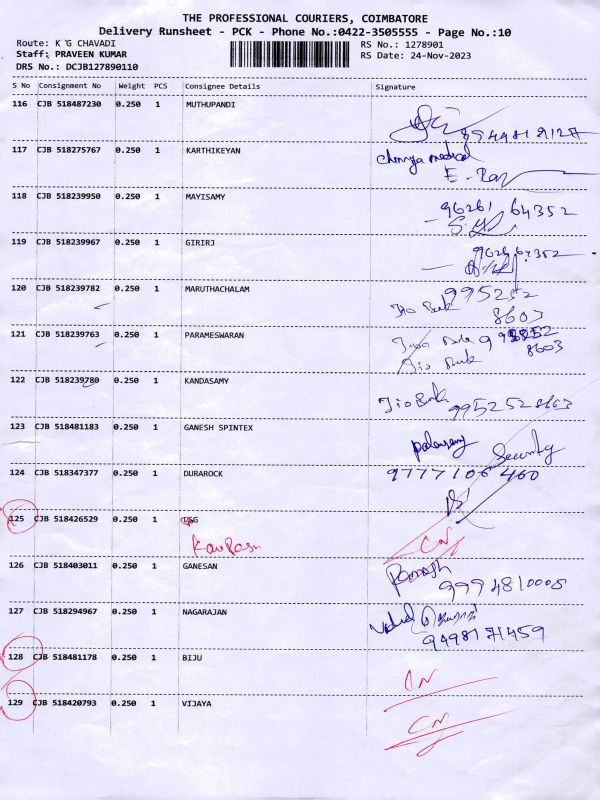 THE PROFESSIONAL COURIERS, COIMBATORE
Delivery Runsheet - PCK - Phone No.:0422-3505555 - Page No.:10
Route: K G CHAVADI
RS No.: 1278901
Staff: PRAVEEN KUMAR
RS Date: 24-Nov-2023
DRS No.: DCJB127890110
S No Consignment No Weight PCS Consignee Details Signature
116 CJB 518487230 0.250 1 MUTHUPANDI
117 CJB 518275767 0.250 1 KARTHIKEYAN
medical
118 CJB 518239950 0.250 1 MAYISAMY
96261 64352
119 CJB 518239967 0.250 1 GIRIRJ
120 CJB 518239782 0.250 1 MARUTHACHALAM
995252
Jio Bunk 8603
121 CJB 518239763 0.250 1 PARAMESWARAN
8603
Jio Bunk
122 CJB 518239780 0.250 1 KANDASAMY
Jio Bunk 9952528603
123 CJB 518481183 0.250 1 GANESH SPINTEX
Security
124 CJB 518347377 0.250 1 DURAROCK
9777106460
125 CJB 518426529 0.250 1
CN
126 CJB 518403011 0.250 1 GANESAN
Ramesh
9994810005
127 CJB 518294967 0.250 1 NAGARAJAN
9498171459
128 CJB 518481178 0.250 1 BIJU
CN
129 CJB 518420793 0.250 1 VIJAYA
CN